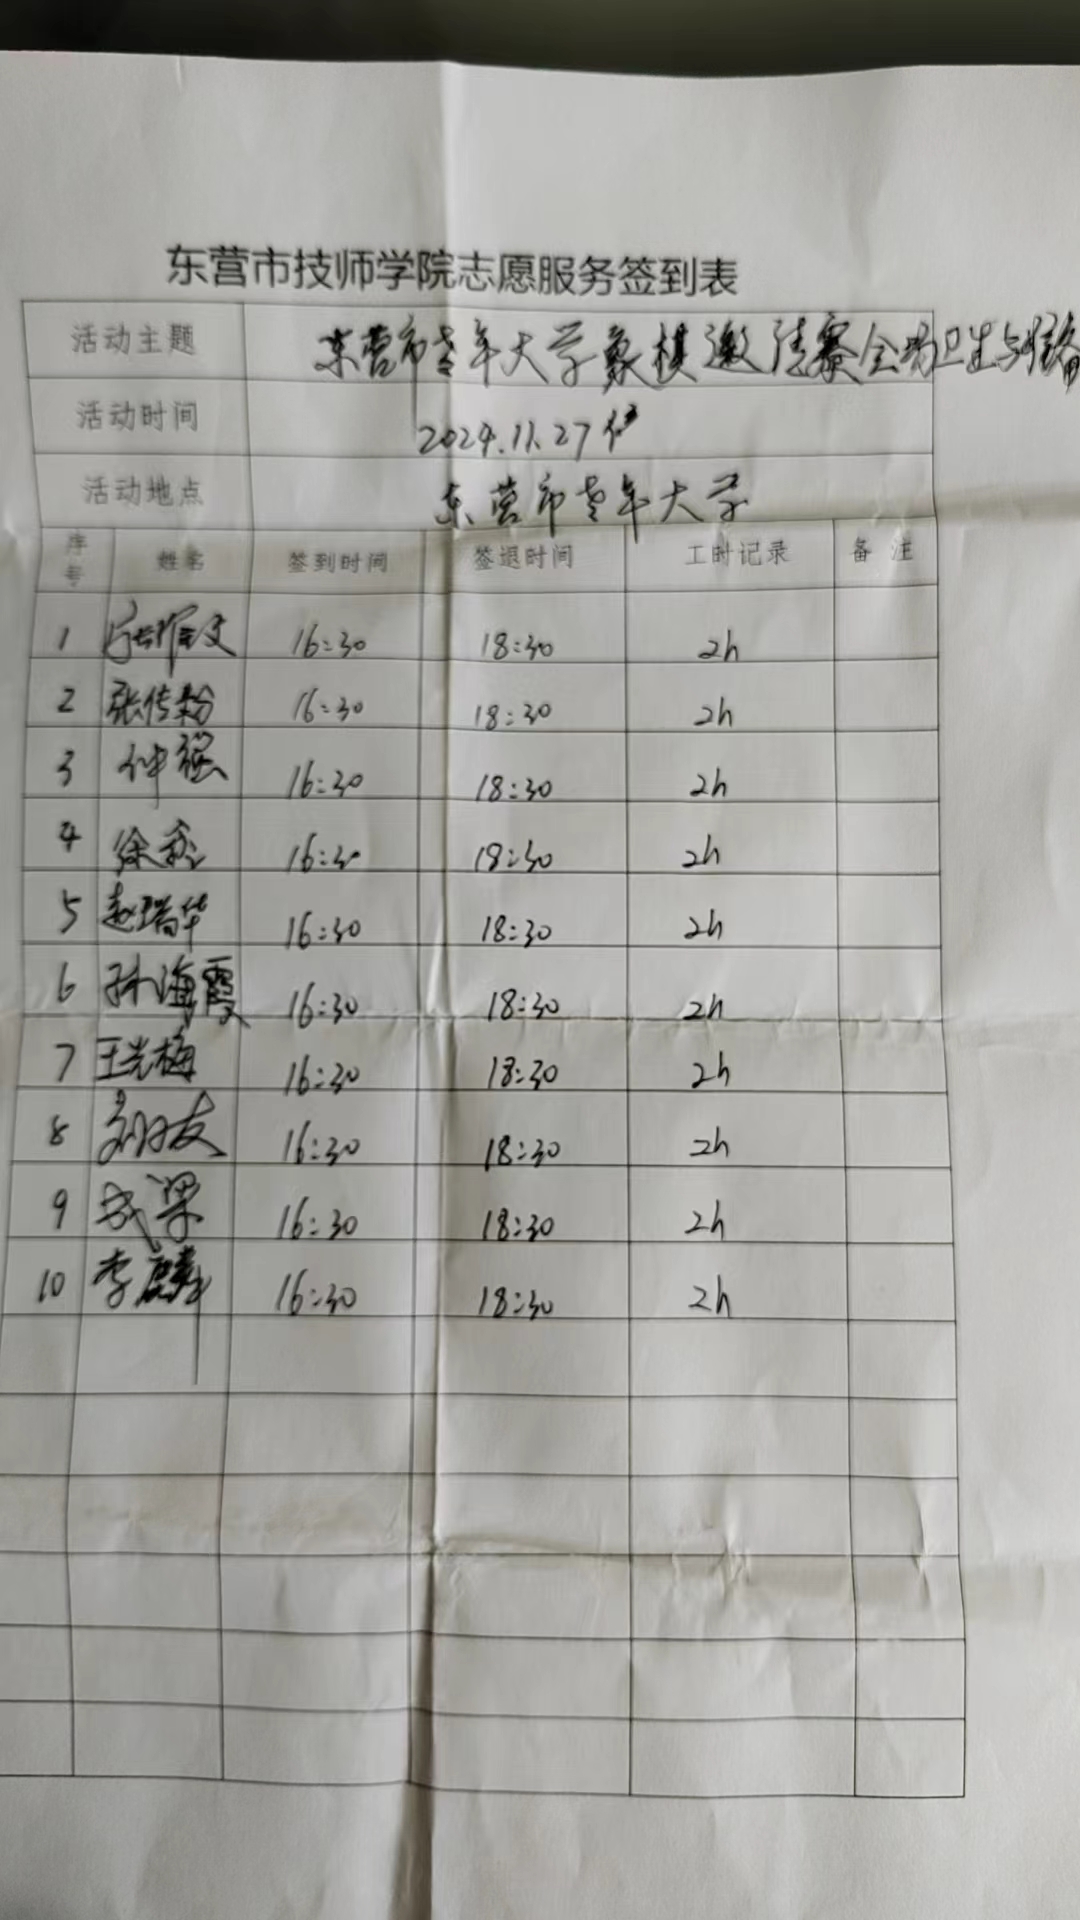 东营市技师学院志愿服务签到表
活动主题 东营市老年大学象棋邀请赛会场卫生与
活动时间 2024.11.27
活动地点 东营市老年大学
序号 姓名 签到时间 签退时间 工时记录 备注
1 16:30 18:30 2h
2 张传粉 16:30 18:30 2h
3 仲强 16:30 18:30 2h
4 徐 16:30 18:30 2h
5 赵瑞华 16:30 18:30 2h
6 孙海霞 16:30 18:30 2h
7 王光梅 16:30 18:30 2h
8 友 16:30 18:30 2h
9 成果 16:30 18:30 2h
10 李麟 16:30 18:30 2h